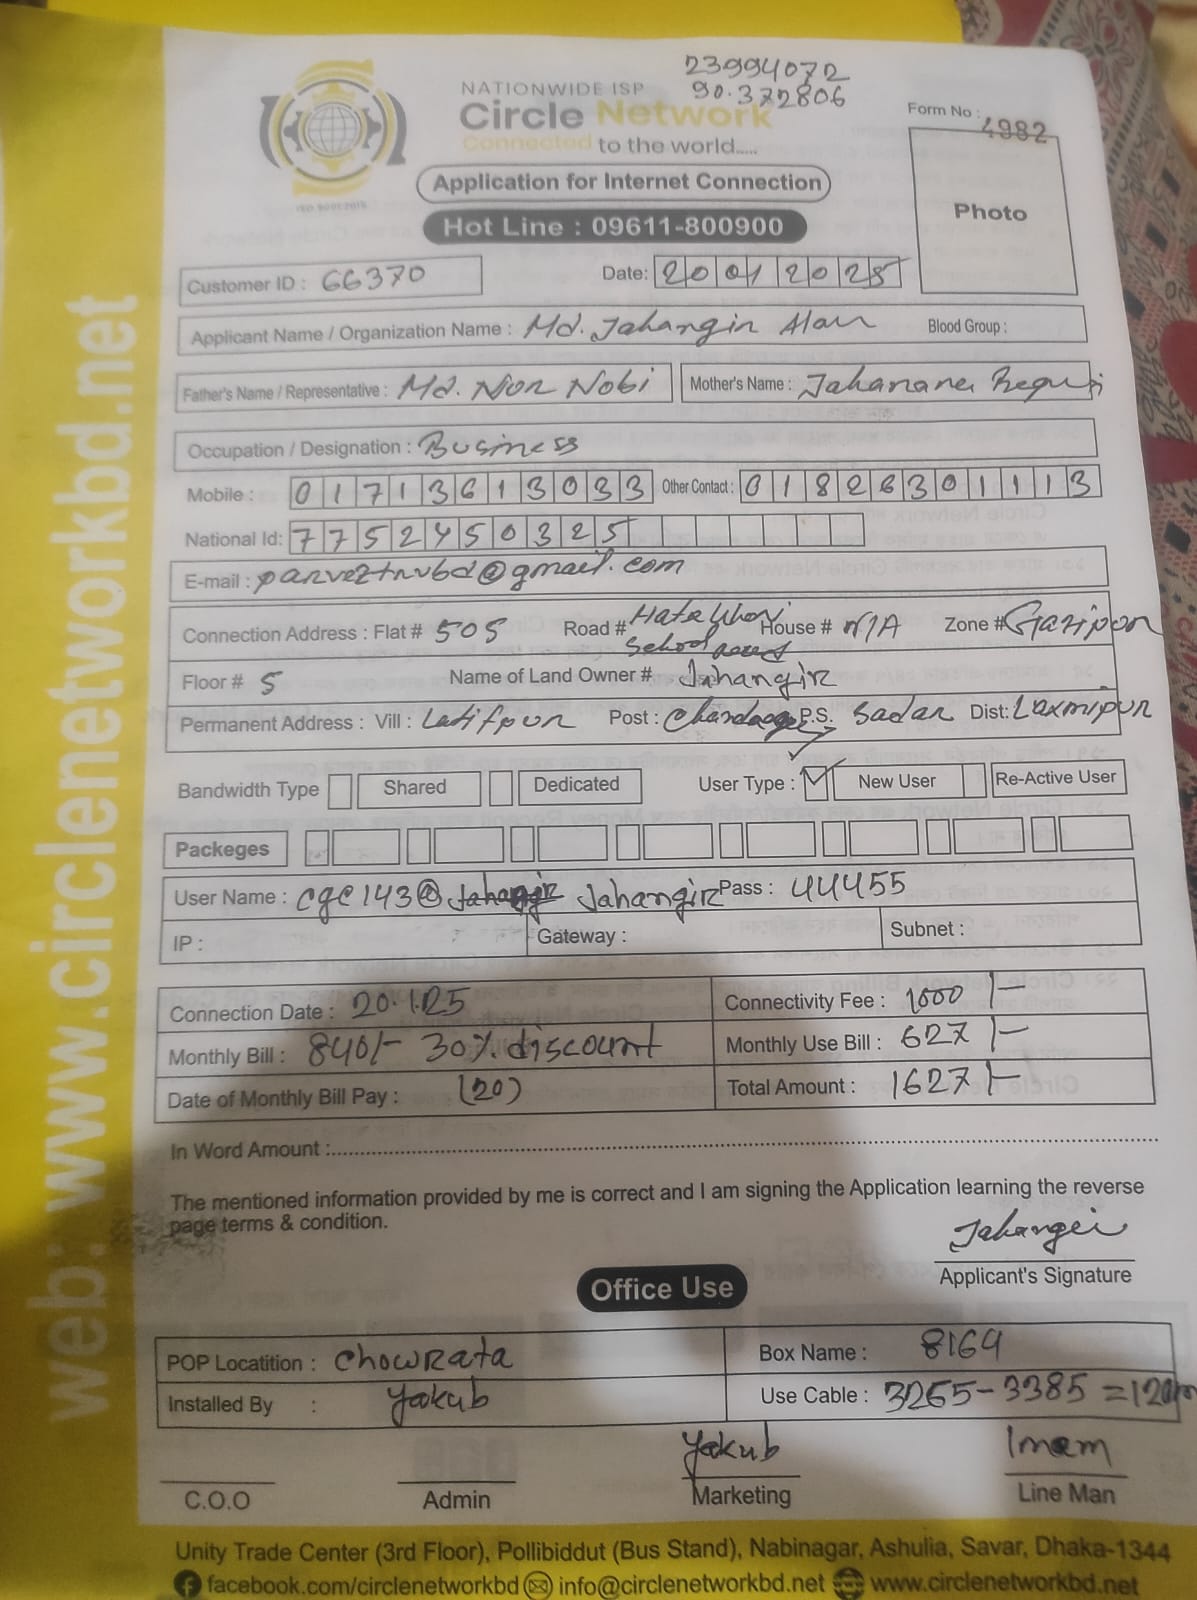 23994072
90.372806
NATIONWIDE ISP
Circle Network
Connected to the world.....
Form No : 4982
Application for Internet Connection
Photo
Hot Line : 09611-800900
ISO 9001:2015
Customer ID : 66370 Date: 20012025
Applicant Name / Organization Name : Md. Jahangir Alam Blood Group :
Father's Name / Representative : Md. Nor Nobi Mother's Name : Jahanara Begum
Occupation / Designation : Business
Mobile : 01713613033 Other Contact : 01826301113
National Id: 7752450325
E-mail : parveztnvbd@gmail.com
Connection Address : Flat # 505 Road # School House # N/A Zone # Gazipur
Floor # 5 Name of Land Owner # Jahangir
Permanent Address : Vill : Latifpur Post : P.S. Sadar Dist: Laxmipur
Bandwidth Type Shared Dedicated User Type : New User Re-Active User
Packeges
User Name : cgc143@ Jahangir Pass : 44455
IP : Gateway : Subnet :
Connection Date : 20.1.25 Connectivity Fee : 1000/-
Monthly Bill : 840/- 30% discount Monthly Use Bill : 627/-
Date of Monthly Bill Pay : (20) Total Amount : 1627/-
In Word Amount :
The mentioned information provided by me is correct and I am signing the Application learning the reverse
page terms & condition.
Jahangir
Applicant's Signature
Office Use
POP Locatition : Chowrata Box Name : 8169
Installed By : Yakub Use Cable : 3265-3385 =120m
Yakub Imam
C.O.O Admin Marketing Line Man
Unity Trade Center (3rd Floor), Pollibiddut (Bus Stand), Nabinagar, Ashulia, Savar, Dhaka-1344
facebook.com/circlenetworkbd info@circlenetworkbd.net www.circlenetworkbd.net
web: www.circlenetworkbd.net